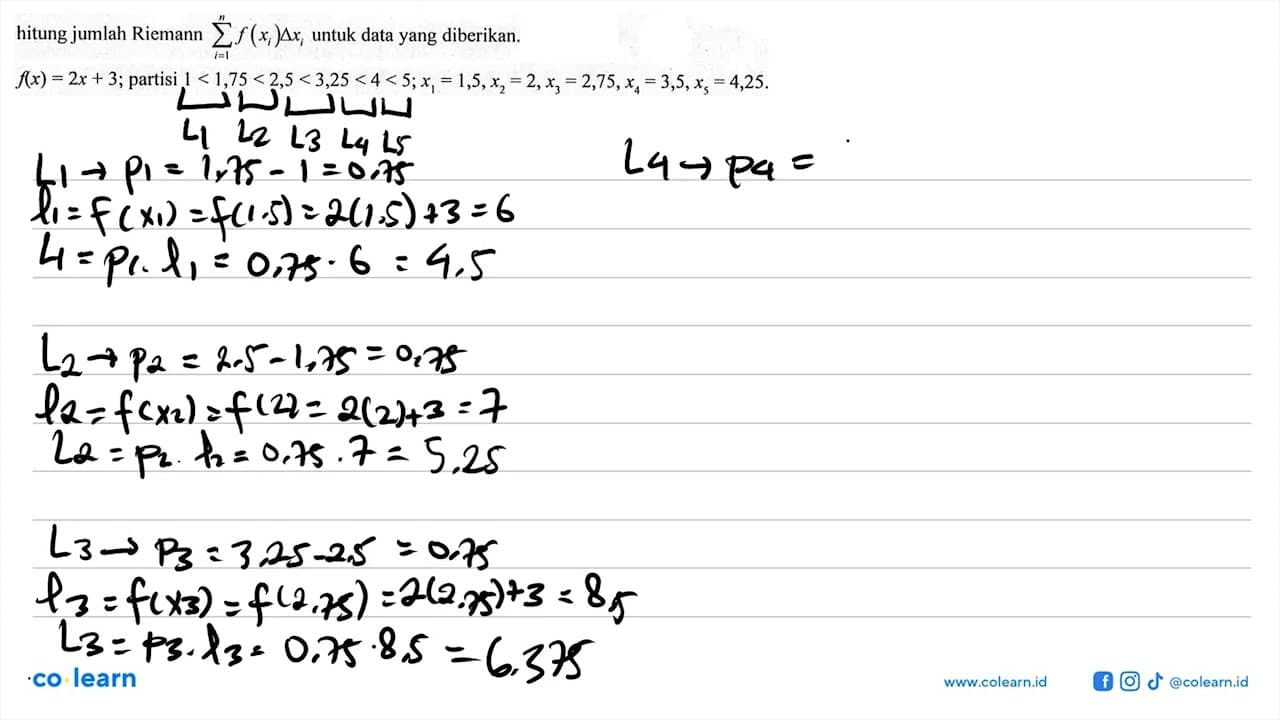 hitung jumlah Riemann \sum_{i=1}^{n} f(x_i)Δx_i untuk data yang diberikan.
f(x) = 2x + 3; partisi 1 < 1,75 < 2,5 < 3,25 < 4 < 5; x₁ = 1,5, x₂ = 2, x₃ = 2,75, x₄ = 3,5, x₅ = 4,25.
L1 L2 L3 L4 L5
L1 → P1 = 1,75 - 1 = 0,75
l1 = f(x1) = f(1.5) = 2(1.5) + 3 = 6
L1 = P1 . l1 = 0,75 . 6 = 4,5
L2 → P2 = 2.5 - 1,75 = 0,75
l2 = f(x2) = f(2) = 2(2) + 3 = 7
L2 = P2 . l2 = 0,75 . 7 = 5,25
L3 → P3 = 3,25 - 2,5 = 0,75
l3 = f(x3) = f(2,75) = 2(2,75) + 3 = 8,5
L3 = P3 . l3 = 0,75 . 8,5 = 6,375
L4 → P4 =
co learn
www.colearn.id
@colearn.id